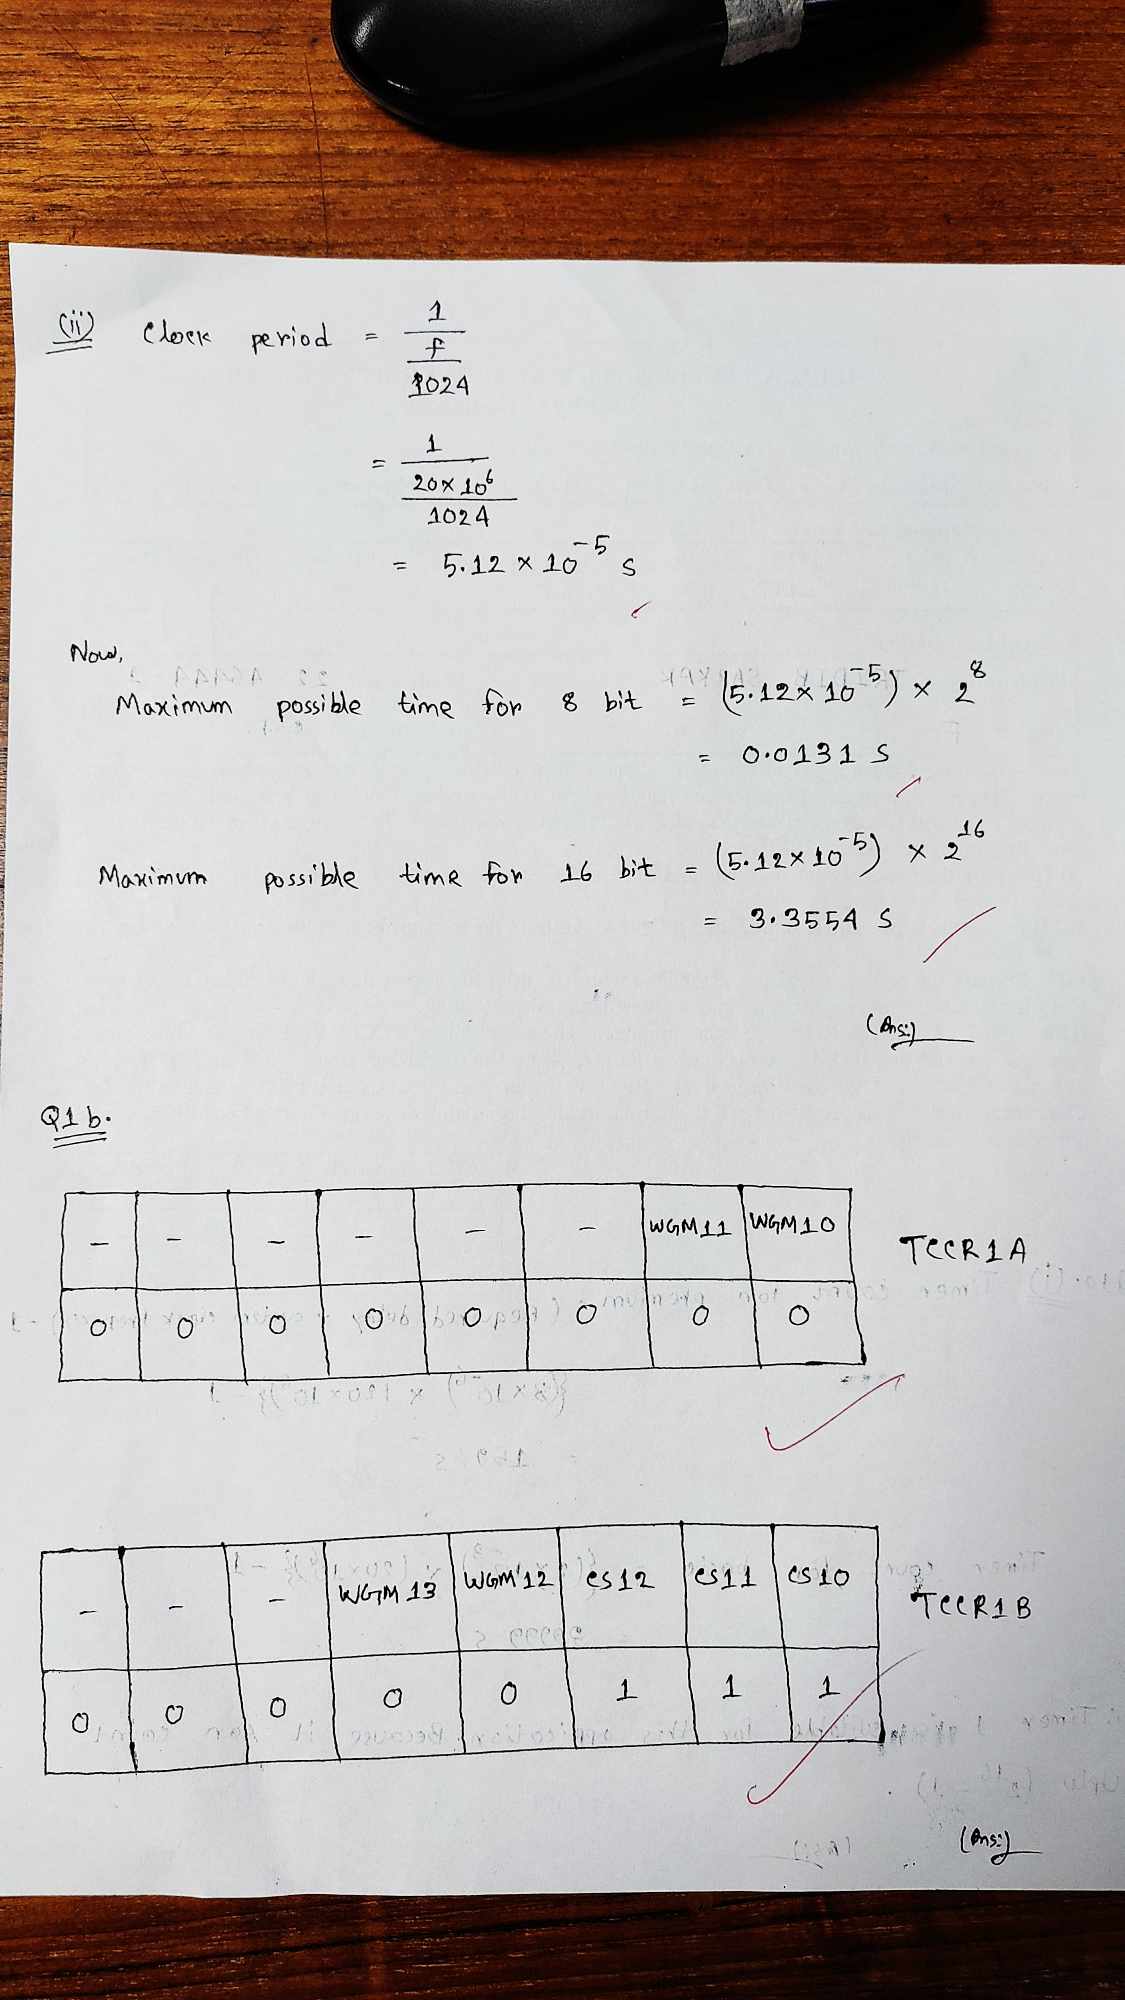 (ii) Clock period = 1 / (f / 1024)
= 1 / (20 × 10^6 / 1024)
= 5.12 × 10^-5 s
Now,
Maximum possible time for 8 bit = (5.12 × 10^-5) × 2^8
= 0.0131 s
Maximum possible time for 16 bit = (5.12 × 10^-5) × 2^16
= 3.3554 s
(Ans:)
Q1 b.
- - - - - - WGM11 WGM10 TCCR1A
0 0 0 0 0 0 0 0
- - - WGM13 WGM12 CS12 CS11 CS10 TCCR1B
0 0 0 0 0 1 1 1
(Ans:)